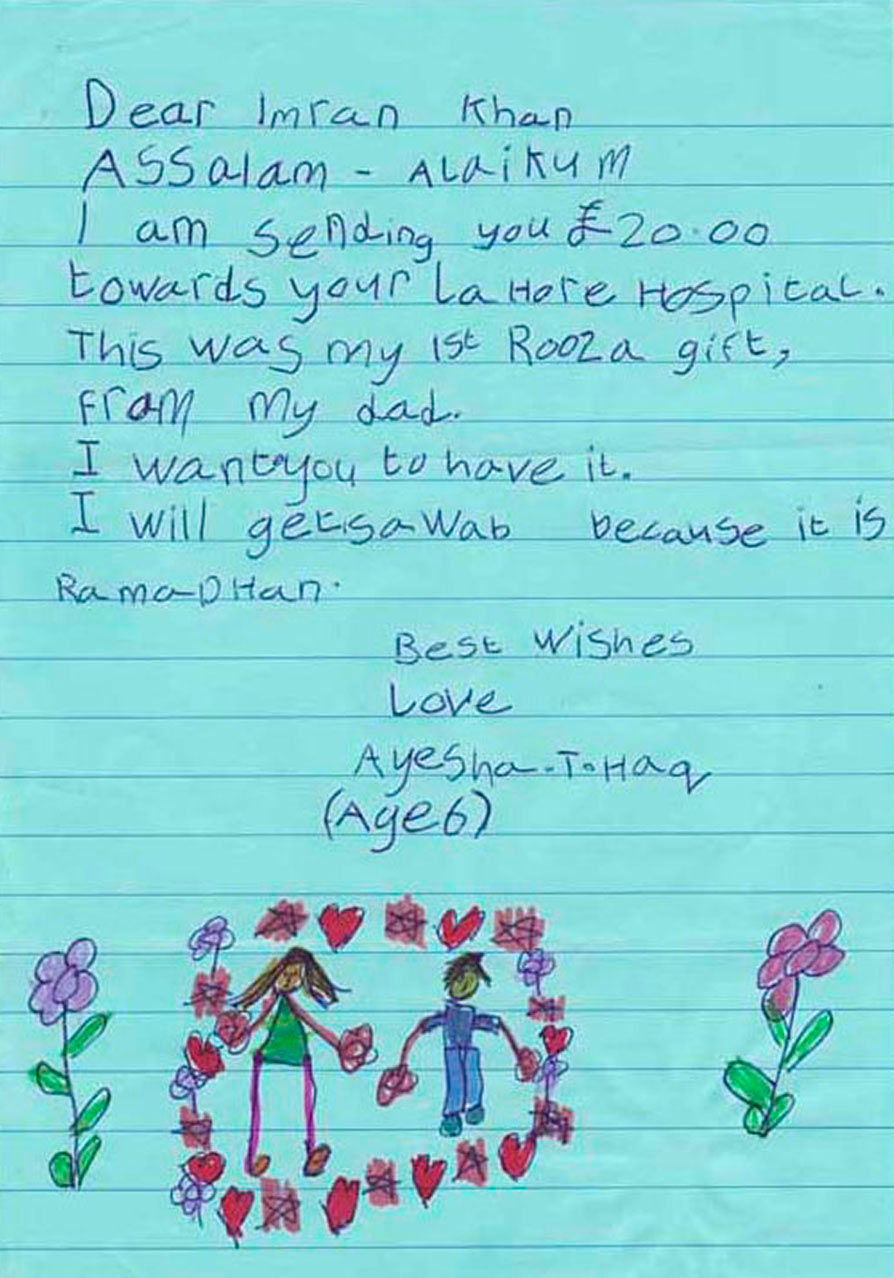 Dear Imran Khan
ASSalam - ALaiKuM
I am sending you £20.00
towards your LaHore Hospital.
This was my 1st Rooza gift,
from my dad.
I want you to have it.
I will get sawab because it is
RamaDHan.
Best Wishes
Love
Ayesha.T.Haq
(Age6)